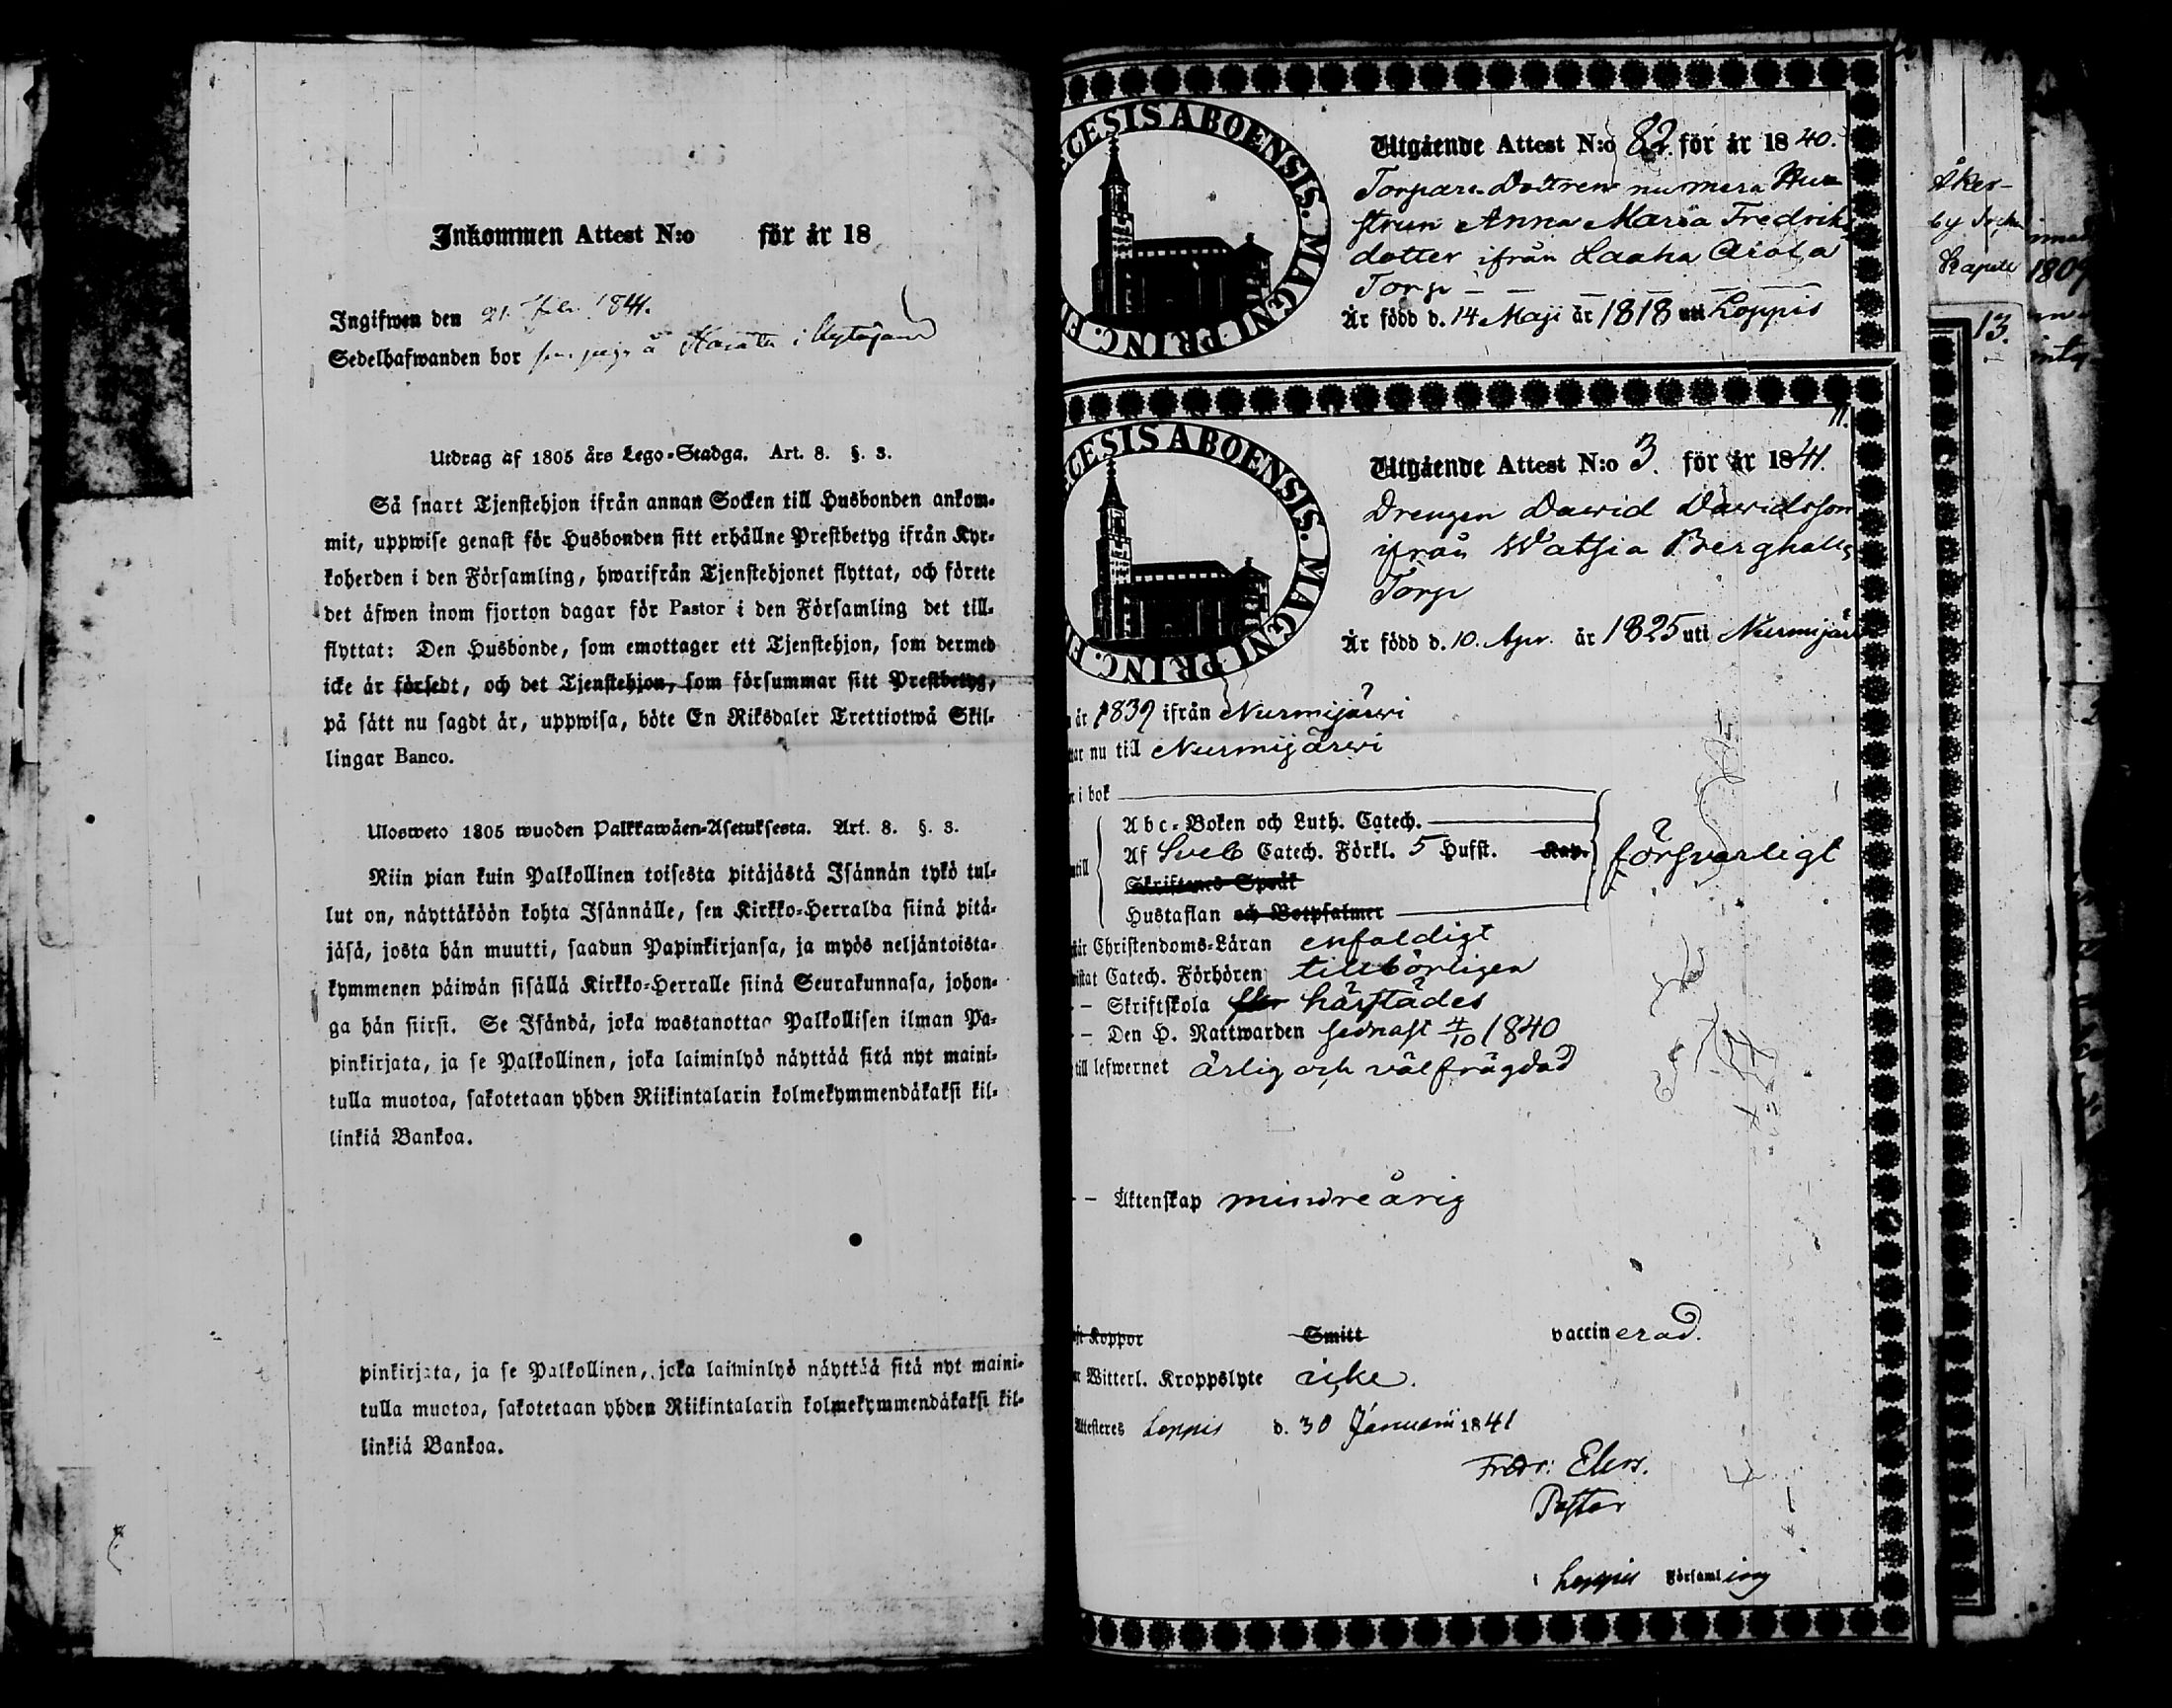 Inkommen Attest N:o för år 18
Ingifwen den 21. 1841.
Sedelhafwanden bor i
Utdrag af 1805 års Lego-Stadga. Art. 8. §. 3.
Så snart Tjenstehjon ifrån annan Socken till Husbonden ankom-
mit, uppwise genast för Husbonden sitt erhållne Prestbetyg ifrån Kyr-
koherden i den Församling, hwarifrån Tjenstehjonet flyttat, och förete
det äfwen inom fjorton dagar för Pastor i den Församling det till-
flyttat: Den Husbonde, som emottager ett Tjenstehjon, som dermed
icke är försedt, och det Tjenstehjon, som försummar sitt Prestbetyg,
på sätt nu sagdt är, uppwisa, böte En Riksdaler Trettiotwå Skil-
lingar Banco.
Ulosweto 1805 wuoden Palkkawäen-Asetuksesta. Art. 8. §. 3.
Niin pian kuin Palkollinen toisesta pitäjästä Isännän tykö tul-
lut on, näyttäköön kohta Isännälle, sen Kirkko-Herralda siinä pitä-
jäsä, josta hän muutti, saadun Papinkirjansa, ja myös neljäntoista-
kymmenen päiwän sisällä Kirkko-Herralle siinä Seurakunnasa, johon-
ga hän siirsi. Se Isändä, joka wastanottaa Palkollisen ilman Pa-
pinkirjata, ja se Palkollinen, joka laiminlyö näyttää sitä nyt maini-
tulla muotoa, sakotetaan yhden Riikintalarin kolmekymmendäkaksi kil-
linkiä Bankoa.
pinkirjata, ja se Palkollinen, joka laiminlyö näyttää sitä nyt maini-
tulla muotoa, sakotetaan yhden Riikintalarin kolmekymmendäkaksi kil-
linkiä Bankoa.
CESIS ABOENSIS. MAGNI PRINC. E
Utgående Attest N:o 82. för år 1840.
Torpare Dottren numera Hu
strun Anna Maria Fredriks
dotter ifrån Laaha Arola
Torp
Är född d. 14 Maji år 1818 uti Loppis
CESIS ABOENSIS. MAGNI PRINC. E
11.
Utgående Attest N:o 3. för år 1841.
Drengen Dawid Dawidsson
ifrån Watsia Berghalls
Torp
Är född d. 10. Apr. år 1825 uti Nurmijär
år 1839 ifrån Nurmijärwi
nu till Nurmijärwi
i bok
Abc-Boken och Luth. Catech.
Af Sveb Catech. Förkl. 5 Hufst. Kap. försvarligt
Skriftenes Språk
Hustaflan och Botpsalmer
Christendoms-Läran enfaldigt
Catech. Förhören tillbörligen
Skriftskola härstädes
Den H. Nattwarden sednast 4/10 1840
till lefwernet ärlig och välfrägdad
Äktenskap mindreårig
Koppor Smitt vaccinerad.
Witterl. Kroppslyte icke.
Attesteres Loppis d. 30 Januarii 1841
Fredr: Elers.
Pastor
i Loppis Församling
Åker-
by Socken
Kapell
13.
1809